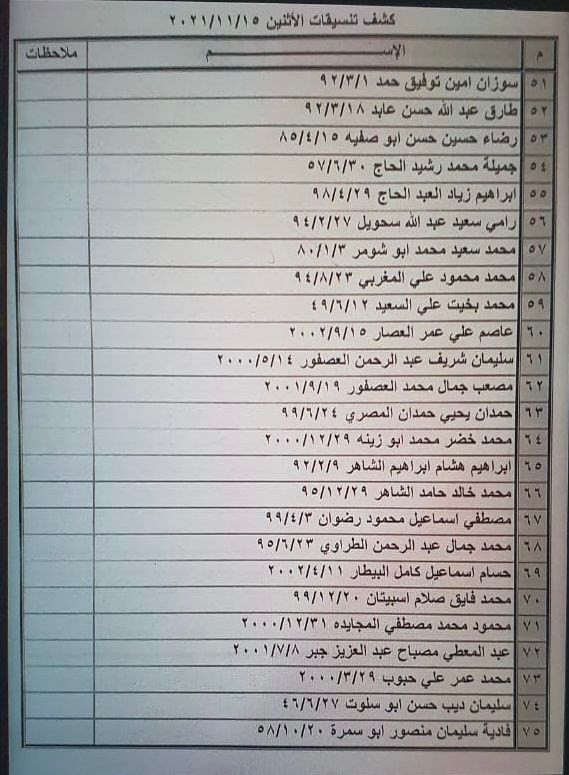 كشف تنسيقات الأثنين ٢٠٢١/١١/١٥
م الإســـم ملاحظات
٥١ سوزان امين توفيق حمد ٩٢/٣/١
٥٢ طارق عبد الله حسن عابد ٩٢/٣/١٨
٥٣ رضاء حسين حسن ابو صفيه ٨٥/٤/١٥
٥٤ جميلة محمد رشيد الحاج ٥٧/٦/٣٠
٥٥ ابراهيم زياد العبد الحاج ٩٨/٤/٢٩
٥٦ رامي سعيد عبد الله سحويل ٩٤/٢/٢٧
٥٧ محمد سعيد محمد ابو شومر ٨٠/١/٣
٥٨ محمد محمود علي المغربي ٩٤/٨/٢٣
٥٩ محمد بخيت علي السعيد ٤٩/٦/١٢
٦٠ عاصم علي عمر العصار ٢٠٠٢/٩/١٥
٦١ سليمان شريف عبد الرحمن العصفور ٢٠٠٠/٥/١٤
٦٢ مصعب جمال محمد العصفور ٢٠٠١/٩/١٩
٦٣ حمدان يحيي حمدان المصري ٩٩/٦/٢٤
٦٤ محمد خضر محمد ابو زينه ٢٠٠٠/١٢/٢٩
٦٥ ابراهيم هشام ابراهيم الشاهر ٩٢/٢/٩
٦٦ محمد خالد حامد الشاهر ٩٥/١٢/٢٩
٦٧ مصطفي اسماعيل محمود رضوان ٩٩/٤/٣
٦٨ محمد جمال عبد الرحمن الطراوي ٩٥/٦/٢٣
٦٩ حسام اسماعيل كامل البيطار ٢٠٠٢/٤/١١
٧٠ محمد فايق صلام اسبيتان ٩٩/١٢/٢٠
٧١ محمود محمد مصطفي المجايده ٢٠٠٠/١٢/٣١
٧٢ عبد المعطي مصباح عبد العزيز جبر ٢٠٠١/٧/٨
٧٣ محمد عمر علي حبوب ٢٠٠٠/٣/٢٩
٧٤ سليمان ديب حسن ابو سلوت ٤٦/٦/٢٧
٧٥ فادية سليمان منصور ابو سمرة ٥٨/١٠/٢٠